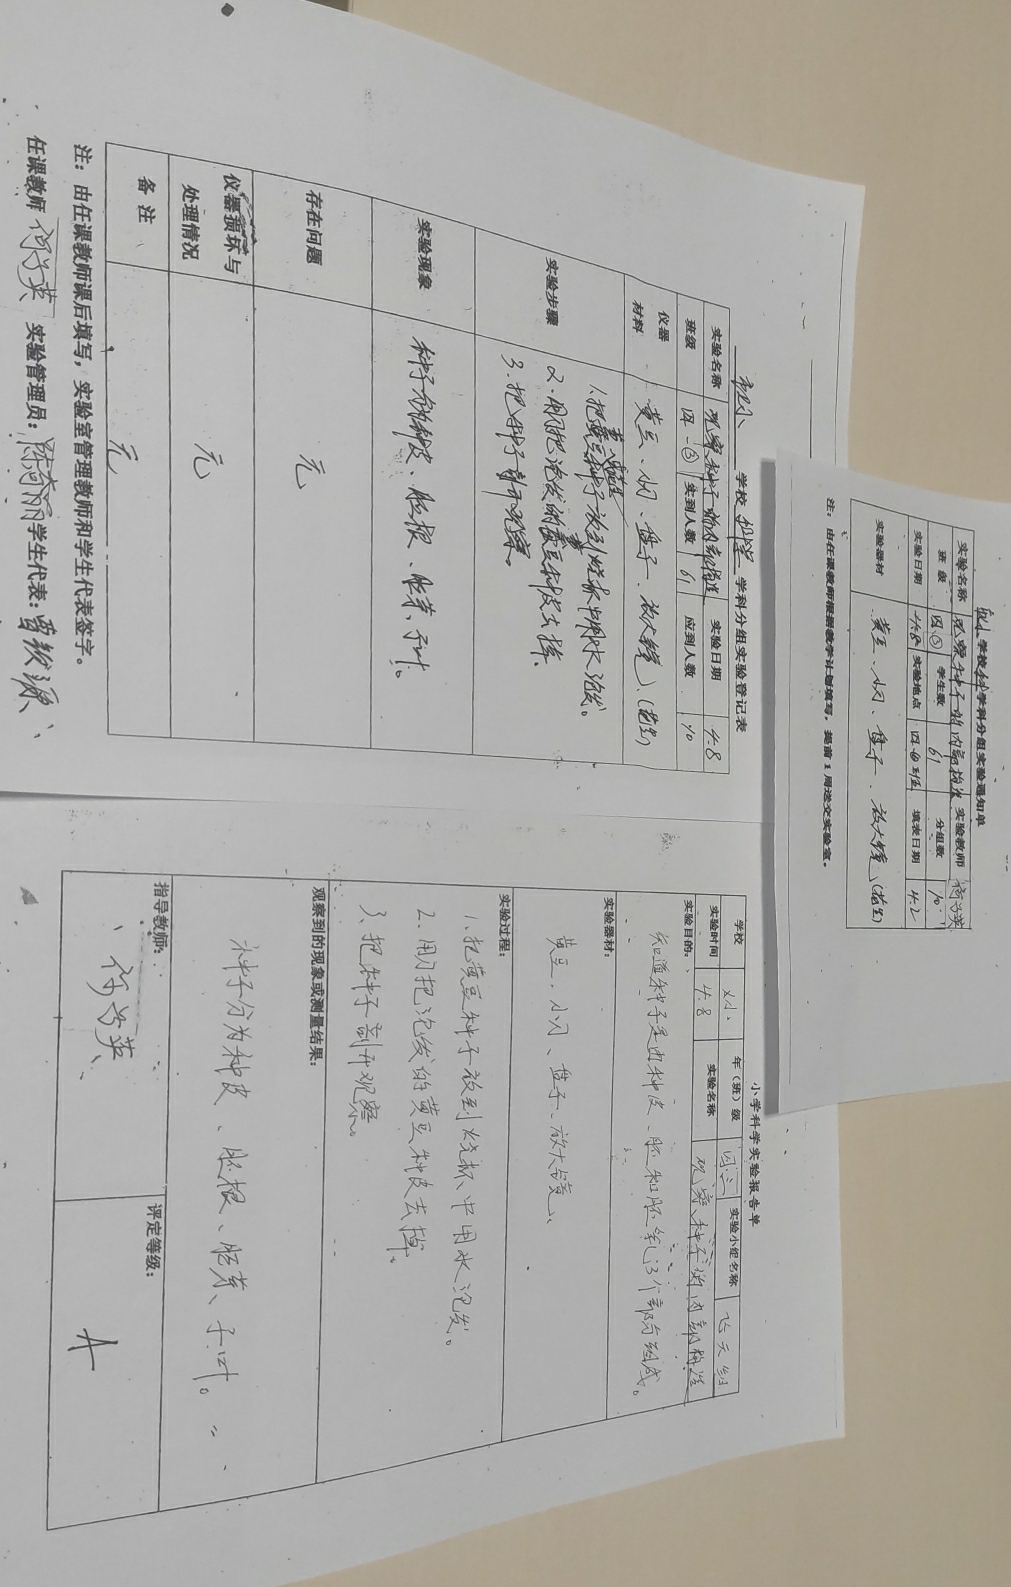 学校 科学 学科分组实验通知单
实验名称 观察种子的内部构造 实验教师
班级 四.③ 学生数 61 分组数 10
实验日期 4.8 实验地点 四.③班 填表日期 4.2
实验器材 黄豆、小刀、盘子、放大镜、
注：由任课教师根据教学计划填写，提前1周送交实验室。
学校 科学 学科分组实验登记表
实验名称 观察种子的内部构造 实验日期 4.8
班级 四.③ 实到人数 61 应到人数
仪器材料 黄豆、小刀、盘子、放大镜、
实验步骤 1.把黄豆种子放到烧杯中用水泡发。
2.用刀把泡发的黄豆种皮去掉、
3.把种子剖开观察。
实验现象 种子分为种皮、胚根、胚芽、子叶。
存在问题 无
仪器损坏与处理情况 无
备注 无
注：由任课教师课后填写，实验室管理教师和学生代表签字。
任课教师 实验管理员： 学生代表：
小学科学实验报告单
学校 年（班）级 四.三 实验小组名称 飞天组
实验时间 4.8 实验名称 观察种子的内部构造
实验目的：
知道种子是由种皮、胚和胚乳3个部分组成。
实验器材：
黄豆，小刀、盘子、放大镜、
实验过程：
1、把黄豆种子放到烧杯、中用水泡发。
2、用刀把泡发的黄豆种皮去掉。
3、把种子剖开观察。
观察到的现象或测量结果：
种子分为种皮、胚根、胚芽、子叶。
指导教师： 评定等级： A